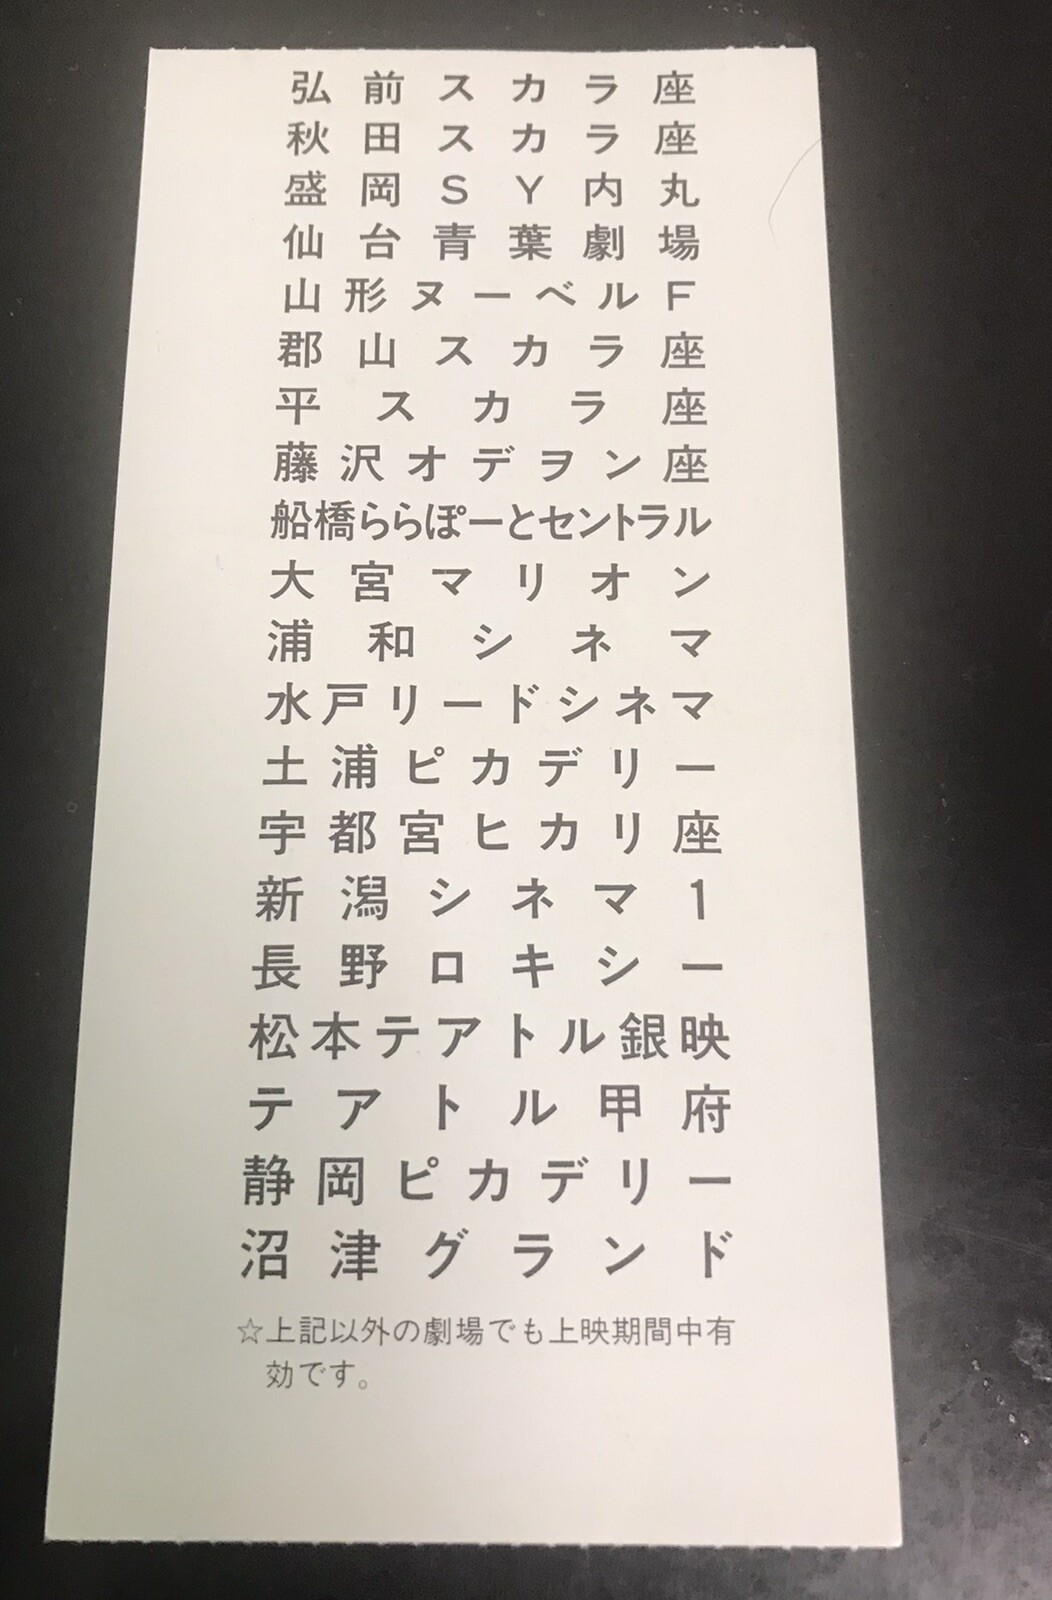 弘前スカラ座
秋田スカラ座
盛岡SY内丸
仙台青葉劇場
山形ヌーベルF
郡山スカラ座
平スカラ座
藤沢オデヲン座
船橋ららぽーとセントラル
大宮マリオン
浦和シネマ
水戸リードシネマ
土浦ピカデリー
宇都宮ヒカリ座
新潟シネマ1
長野ロキシー
松本テアトル銀映
テアトル甲府
静岡ピカデリー
沼津グランド
☆上記以外の劇場でも上映期間中有
効です。